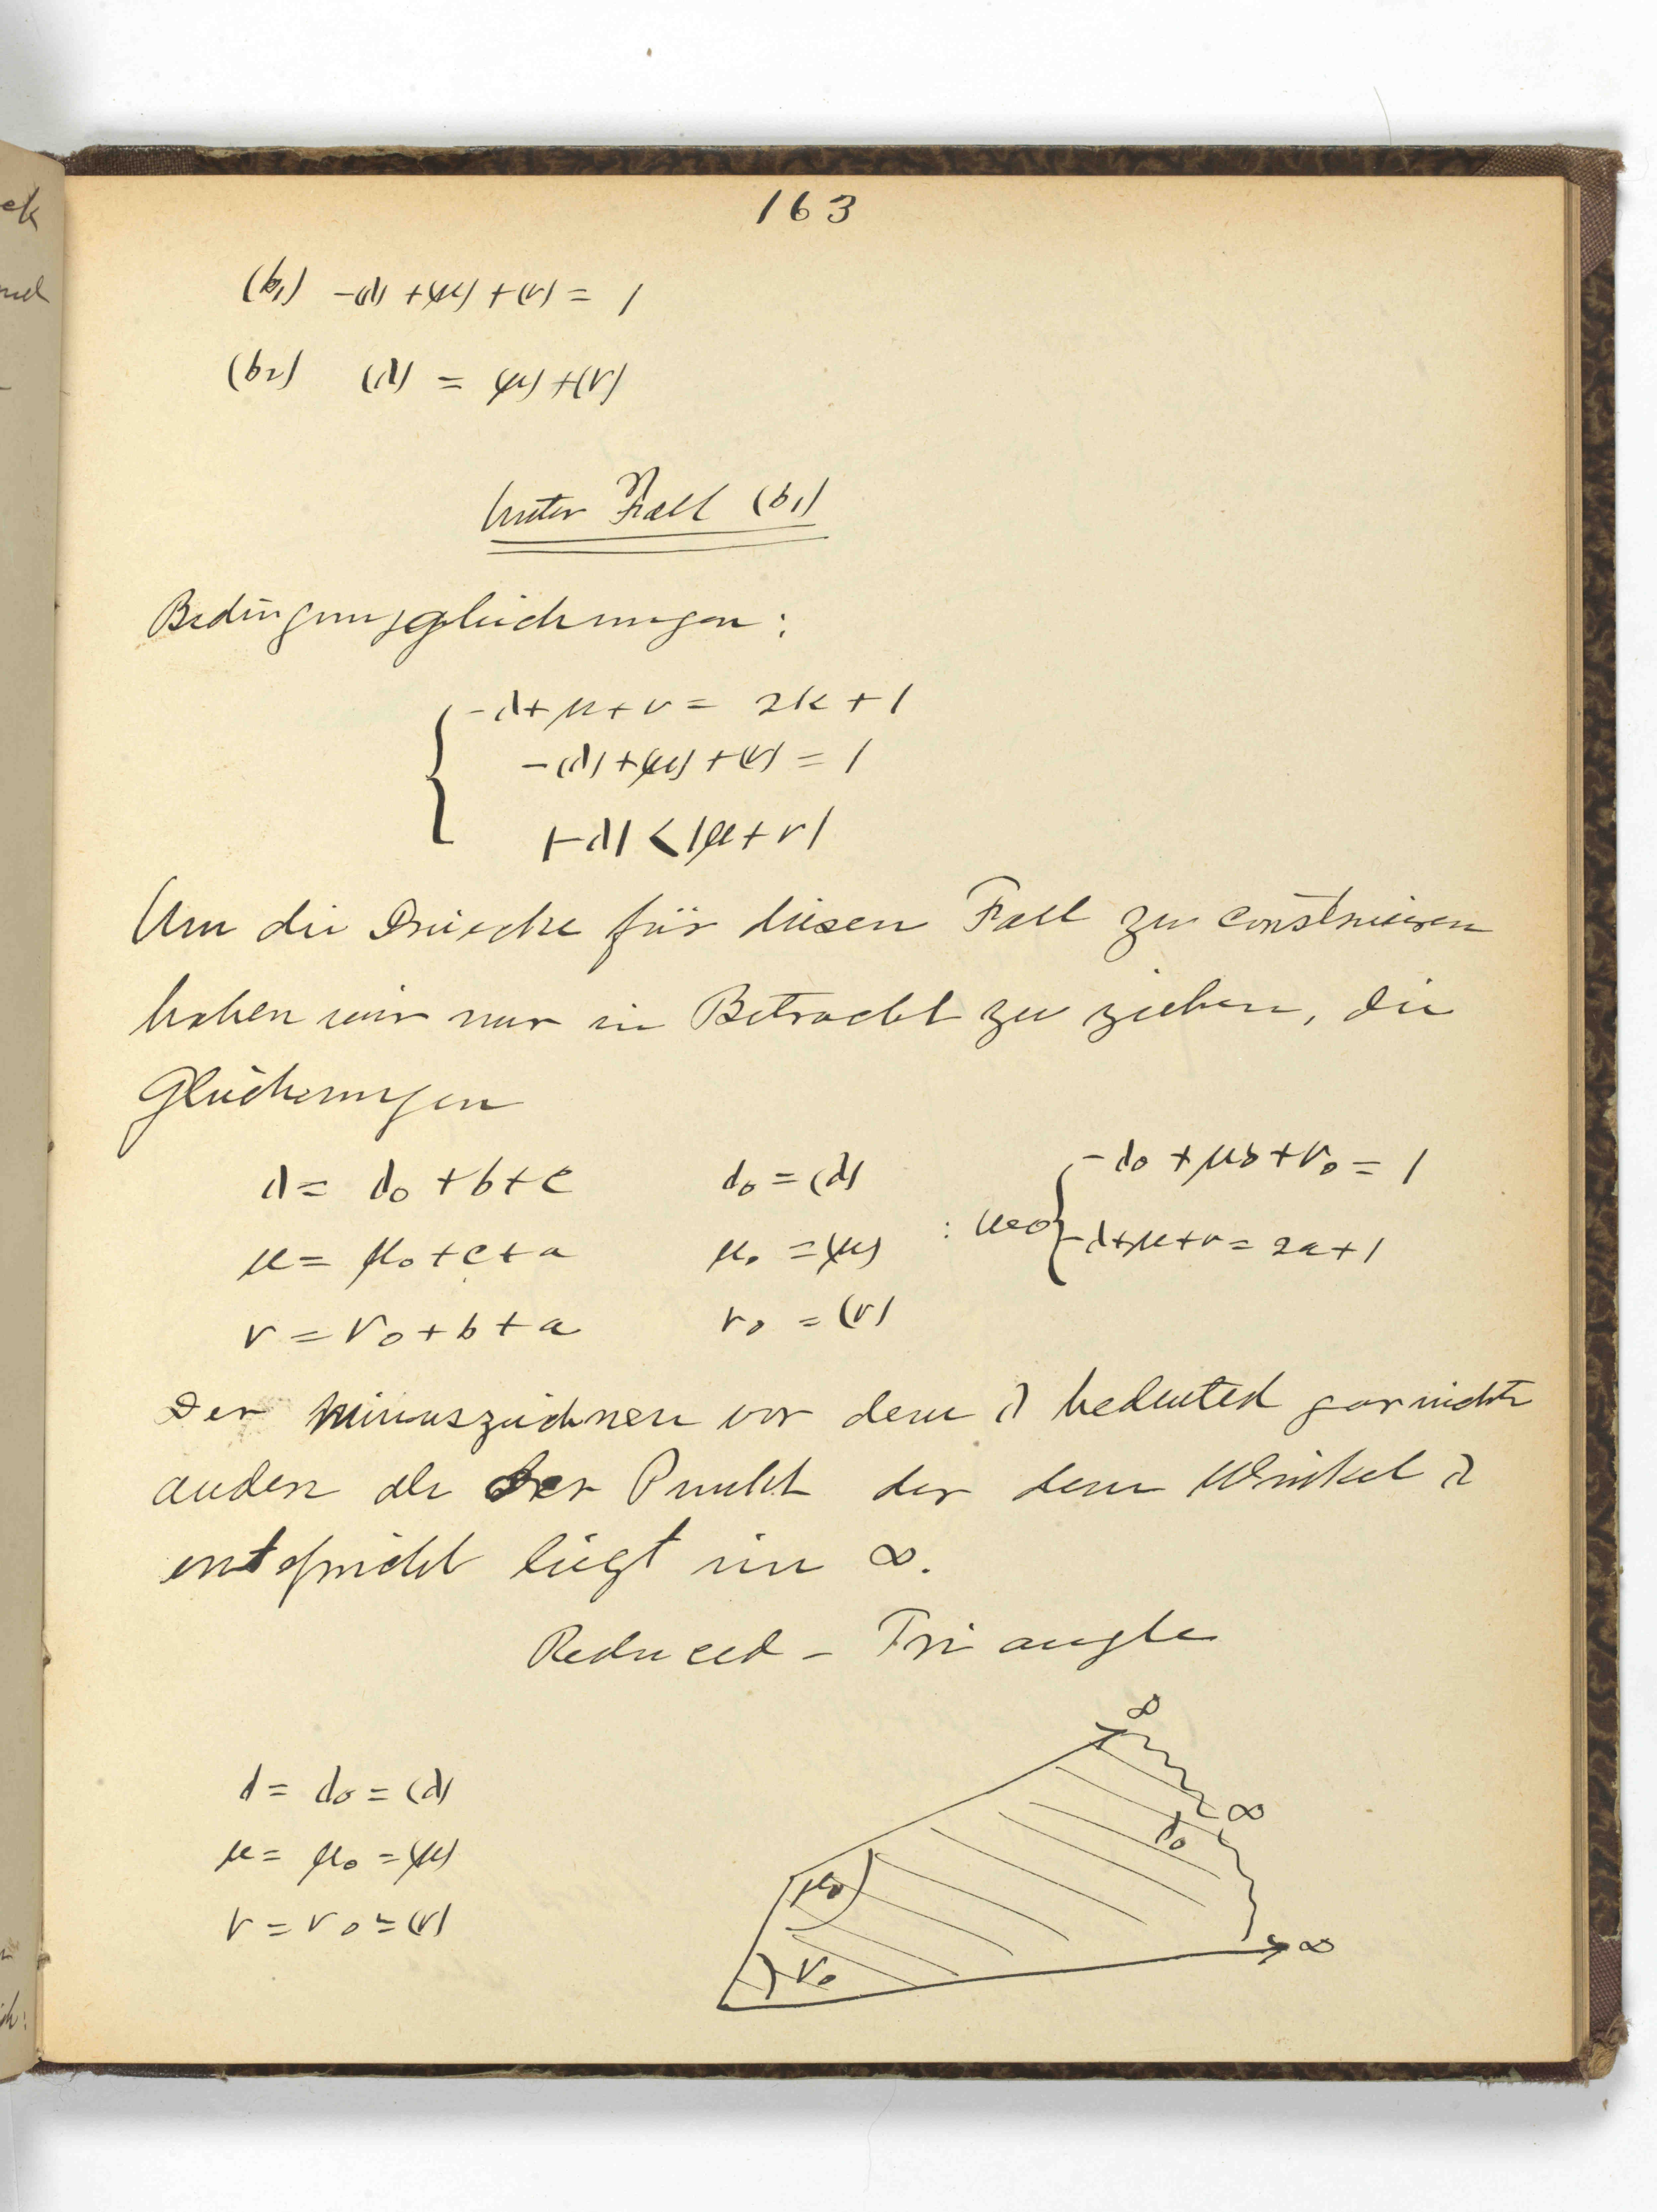 163
(b₁) -(λ) + (μ) + (ν) = 1
(b₂) (λ) = (μ) + (ν)
Unter Fall (b₁)
Bedingungsgleichungen:
-λ + μ + ν = 2k + 1
-(λ) + (μ) + (ν) = 1
|-λ| < |μ + ν|
Um die Dreiecke für diesen Fall zu construieren
haben wir nur in Betracht zu ziehen, die
Gleichungen
λ = λ₀ + b + c λ₀ = (λ) -λ₀ + μ₀ + ν₀ = 1
μ = μ₀ + c + a μ₀ = (μ) : wo -λ + μ + ν = 2a + 1
ν = ν₀ + b + a ν₀ = (ν)
Der minuszeichnen vor dem λ bedeuted gar nichts
anders als der Punkt der dem Winkel λ
entspricht liegt im ∞.
Reduced - Triangle
λ = λ₀ = (λ)
μ = μ₀ = (μ)
ν = ν₀ = (ν)
∞
∞
λ₀
μ₀
∞
ν₀